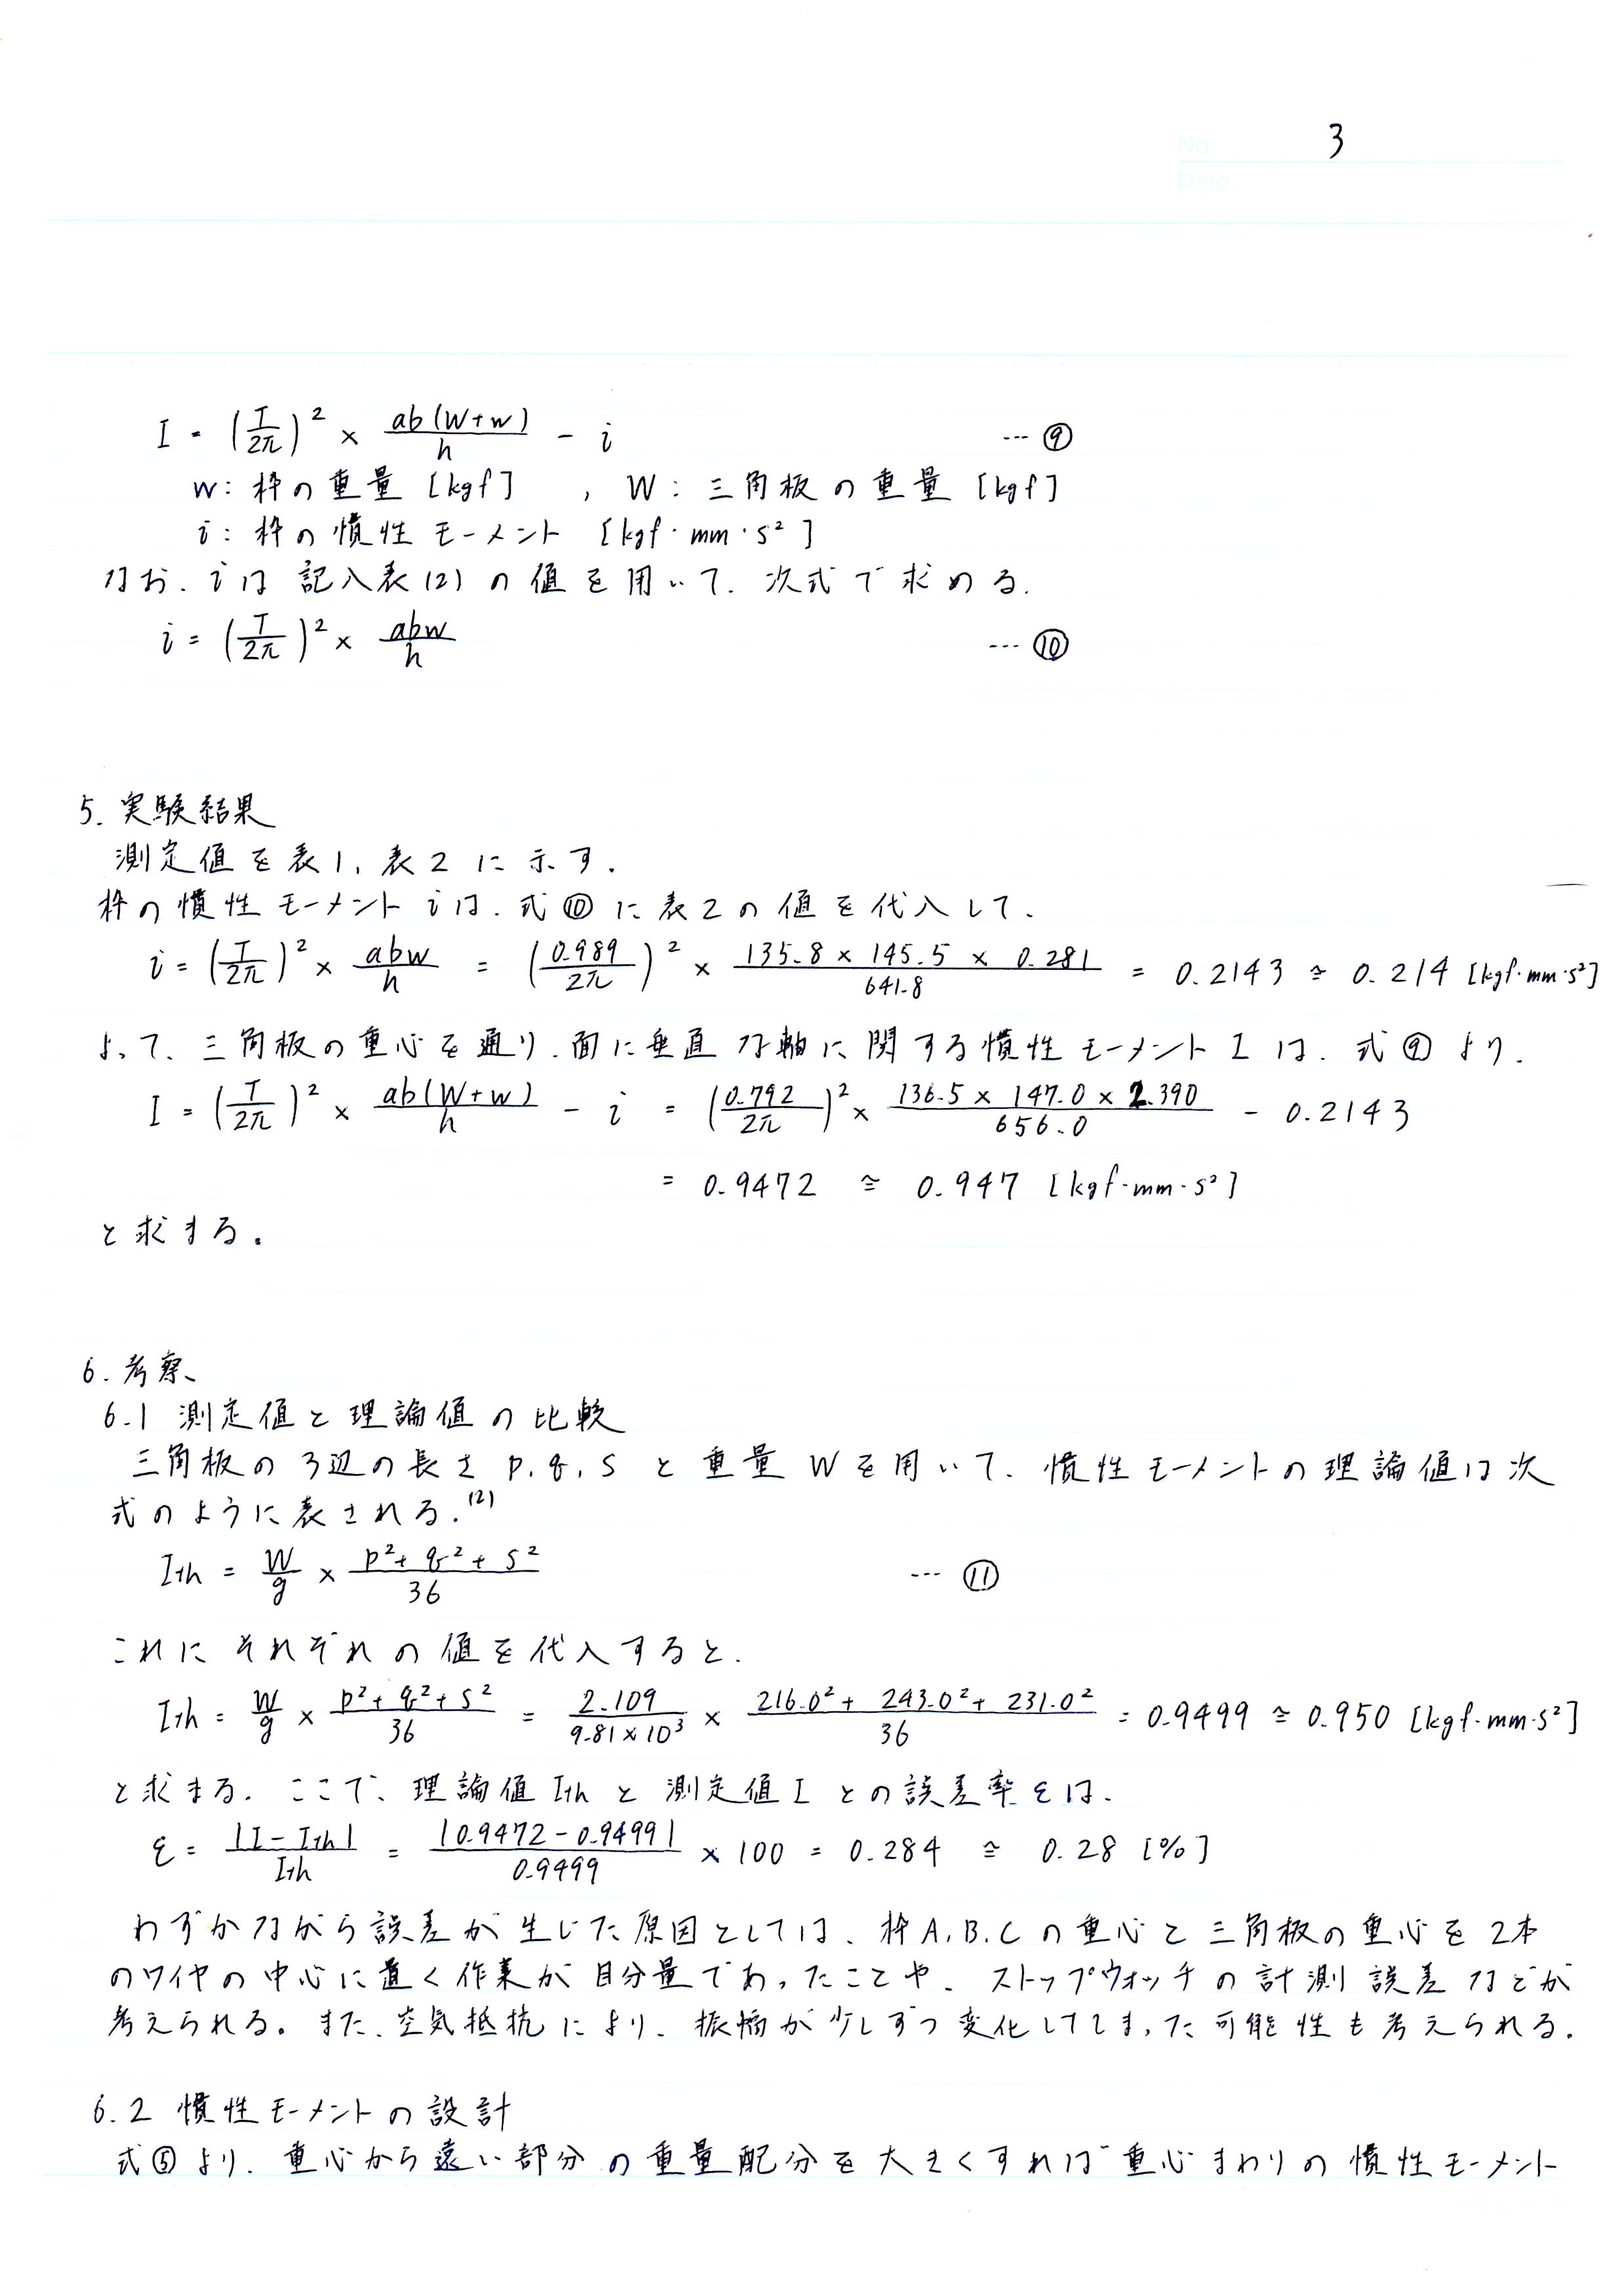 No. 3
Date
I = (T/2π)² × ab(W+w)/h - i … ⑨
w: 枠の重量 [kgf] , W: 三角板の重量 [kgf]
i: 枠の慣性モーメント [kgf・mm・s²]
なお、iは記入表(2)の値を用いて、次式で求める.
i = (T/2π)² × abw/h … ⑩
5. 実験結果
測定値を表1, 表2に示す.
枠の慣性モーメントiは、式⑩に表2の値を代入して、
i = (T/2π)² × abw/h = (0.989/2π)² × 135.8 × 145.5 × 0.281/641.8 = 0.2143 ≅ 0.214 [kgf・mm・s²]
よって、三角板の重心を通り、面に垂直な軸に関する慣性モーメントIは、式⑨より、
I = (T/2π)² × ab(W+w)/h - i = (0.792/2π)² × 136.5 × 147.0 × 2.390/656.0 - 0.2143
= 0.9472 ≅ 0.947 [kgf・mm・s²]
と求まる。
6. 考察、
6.1 測定値と理論値の比較
三角板の3辺の長さ p, q, s と重量 W を用いて、慣性モーメントの理論値は次
式のように表される.⁽²⁾
Ith = W/g × p²+q²+s²/36 … ⑪
これにそれぞれの値を代入すると、
Ith = W/g × p²+q²+s²/36 = 2.109/9.81×10³ × 216.0² + 243.0² + 231.0²/36 = 0.9499 ≅ 0.950 [kgf・mm・s²]
と求まる. ここで、理論値 Ith と測定値 I との誤差率 ε は、
ε = |I - Ith|/Ith = |0.9472 - 0.9499|/0.9499 × 100 = 0.284 ≅ 0.28 [%]
わずかながら誤差が生じた原因としては、枠A, B, Cの重心と三角板の重心を2本
のワイヤの中心に置く作業が目分量であったことや、ストップウォッチの計測誤差などが
考えられる。また、空気抵抗により、振幅が少しずつ変化してしまった可能性も考えられる.
6.2 慣性モーメントの設計
式⑤より、重心から遠い部分の重量配分を大きくすれば重心まわりの慣性モーメント